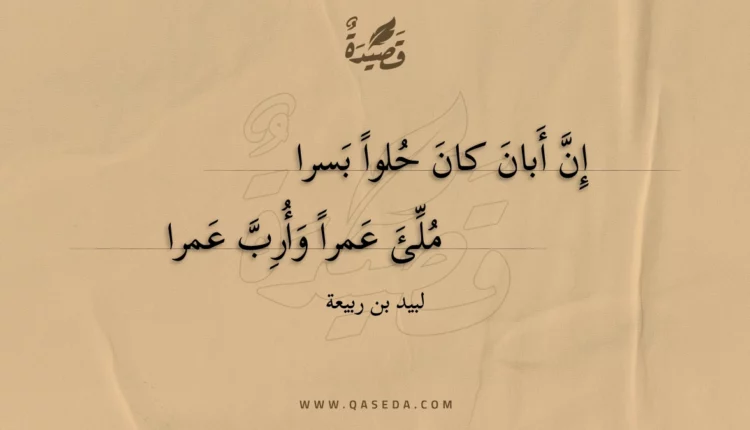 قَصِيدَةٌ
إِنَّ أَبانَ كانَ حُلواً بَسرا
مُلِّئَ عَمراً وَأُرِبَّ عَمرا
لبيد بن ربيعة
WWW.QASEDA.COM